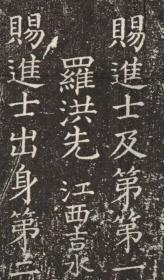 賜進士及第第一
羅洪先 江西吉水
賜進士出身第二